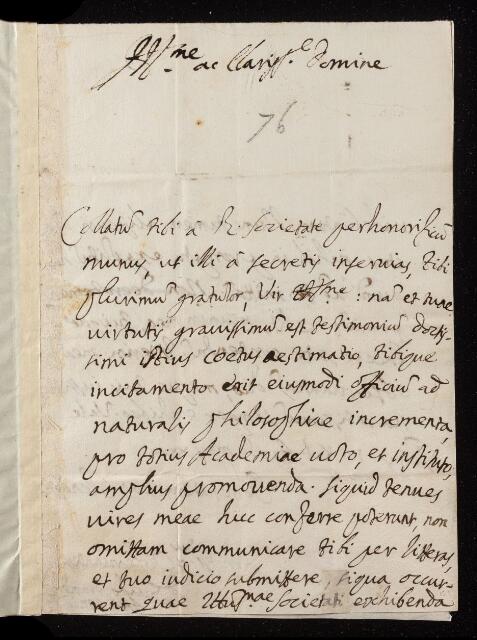 Ill.me ac Clariss.e Domine
76
Collatū tibi à R. Societate perhonorificū
munus, ut illi à secretis inservias, tibi
plurimū gratulor, Vir Ill.me: nā et tuae
virtutis gravissimū est testimoniū docti-
simi istius coetus aestimatio, tibique
incitamento erit eiusmodi officiū ad
naturalis philosophiae incrementa,
pro totius Academiae voto, et instituto,
amplius promovenda. Siquid tenues
vires meae huc conferre poterunt, non
omittam communicare tibi per litteras,
et tuo iudicio submittere, siqua occur-
rent quae Illus.mae Societati exhibenda